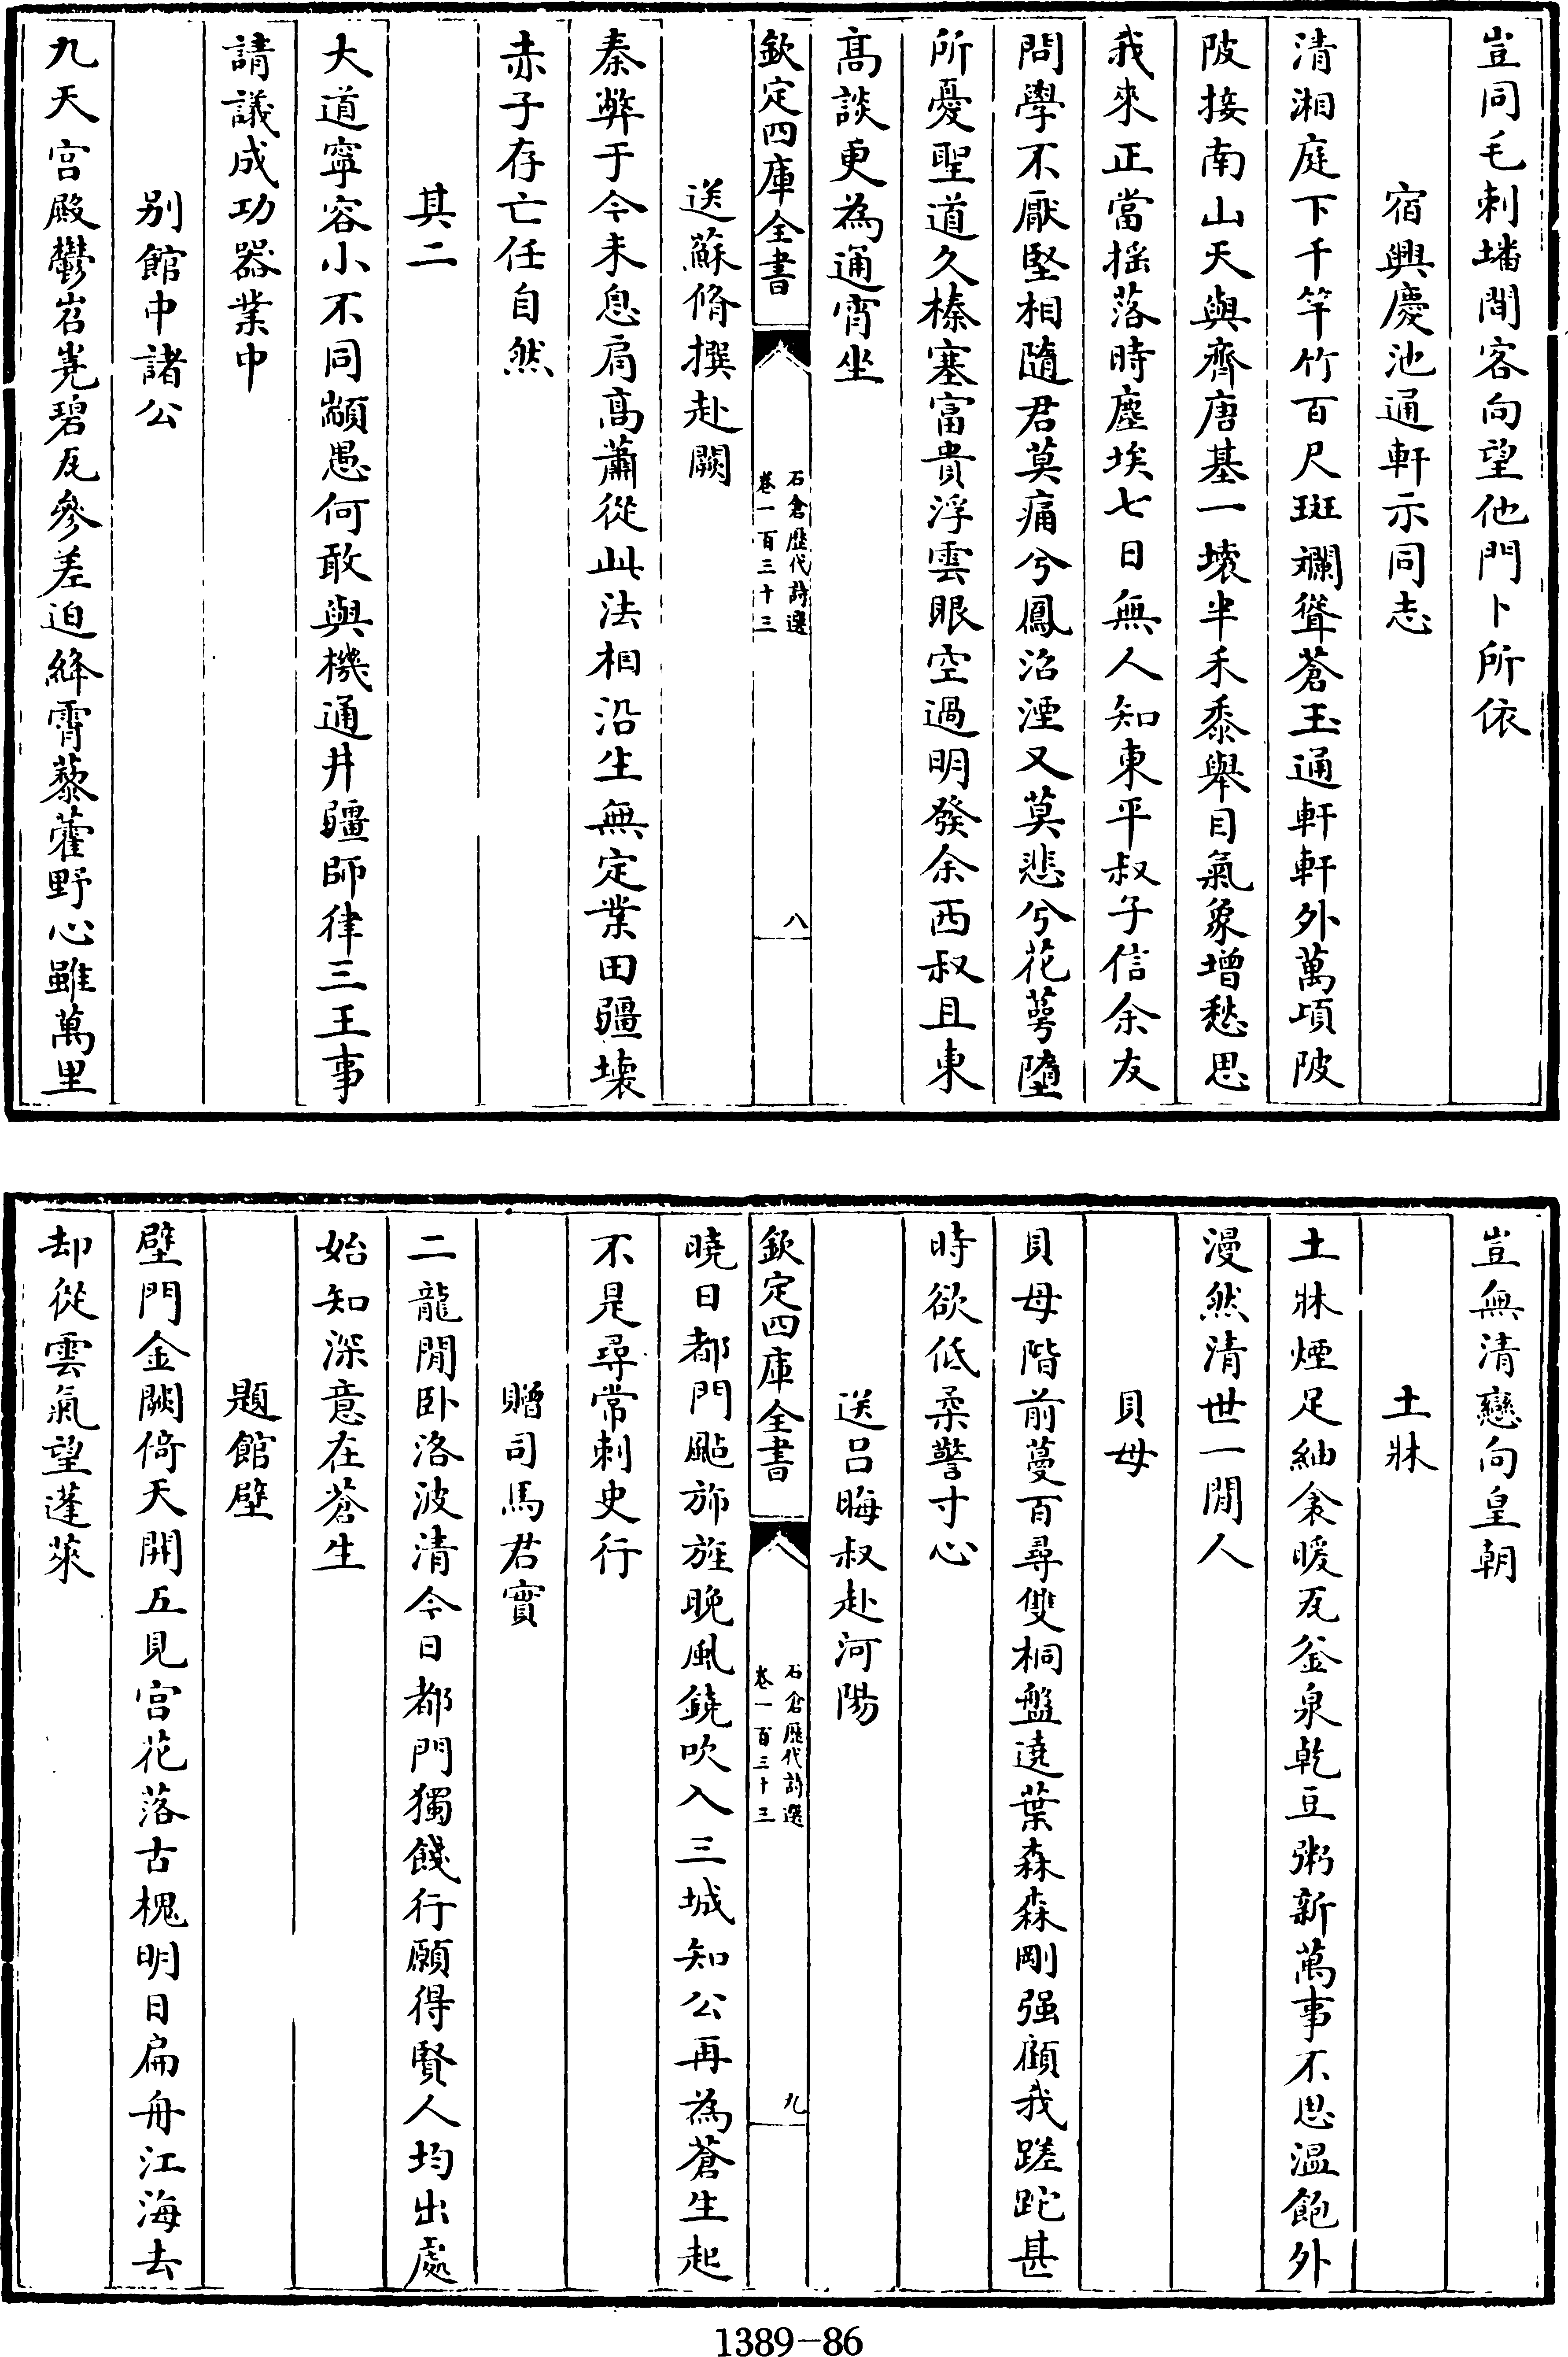 豈同毛刺墦間客向望他門卜所依
宿興慶池通軒示同志
清湘庭下千竿竹百尺斑斕聳蒼玉通軒軒外萬頃陂
陂接南山天與齊唐基一壊半禾黍舉目氣象增愁思
我來正當摇落時塵埃七日無人知東平叔子信余友
問學不厭堅相隨君莫痛兮鳳沼湮又莫悲兮花萼墮
所憂聖道久榛塞富貴浮雲眼空過明發余西叔且東
髙談更為通宵坐
欽定四庫全書
石倉歴代詩選
卷一百三十三
八
送蘇脩撰赴闕
秦弊于今未息肩髙蕭從此法相沿生無定業田疆壊
赤子存亡任自然
其二
大道寜容小不同顓愚何敢與機通井疆師律三王事
請議成功器業中
别館中諸公
九天宫殿鬱岧嶤碧瓦參差迫絳霄藜藿野心雖萬里
豈無清戀向皇朝
土牀
土牀煙足紬衾暖瓦釜泉乾豆粥新萬事不思温飽外
漫然清世一閒人
貝母
貝母階前蔓百尋雙桐盤遶葉森森剛强顧我蹉跎甚
時欲低柔警寸心
送吕晦叔赴河陽
欽定四庫全書
石倉歴代詩選
卷一百三十三
九
曉日都門颭斾旌晚風鐃吹入三城知公再為蒼生起
不是尋常刺史行
贈司馬君實
二龍閒卧洛波清今日都門獨餞行願得賢人均出處
始知深意在蒼生
題館壁
壁門金闕倚天開五見宫花落古槐明日扁舟江海去
却從雲氣望蓬萊
1389-86